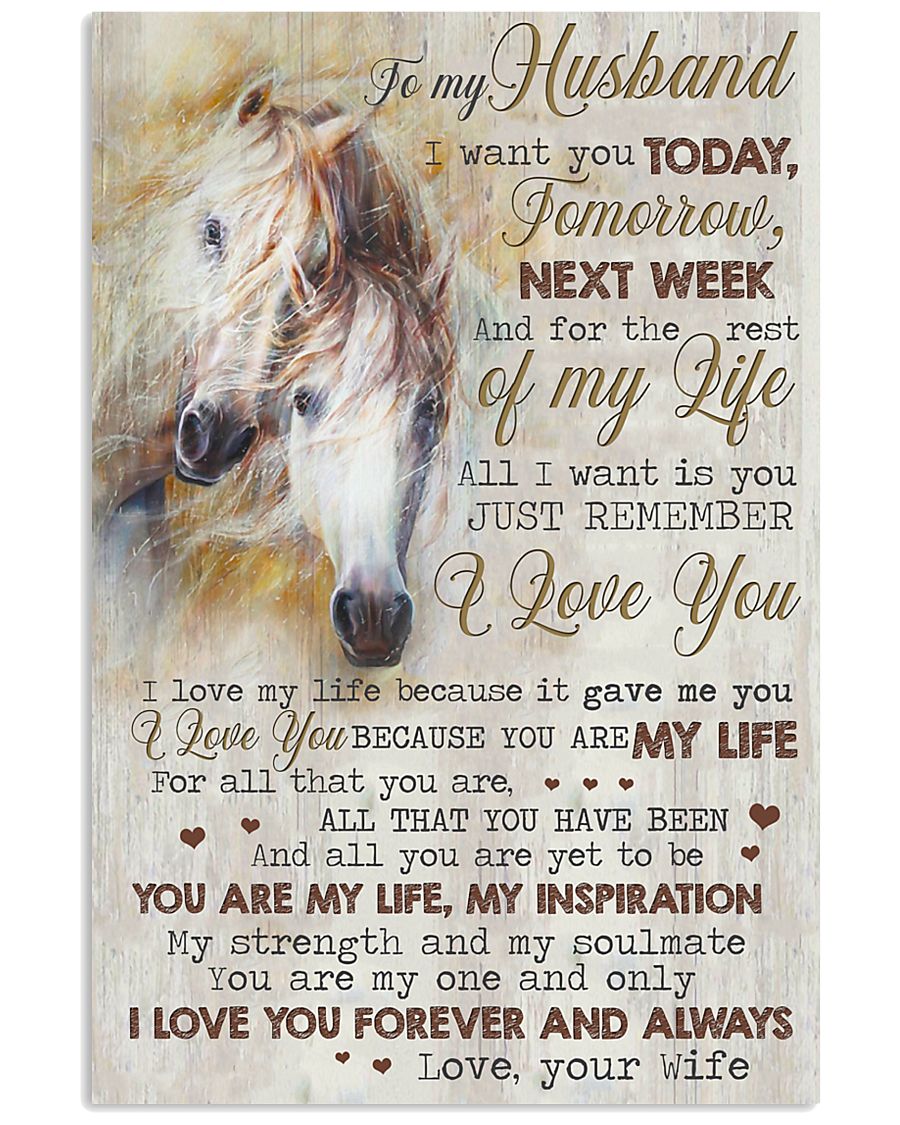 To my Husband
I want you TODAY,
Tomorrow,
NEXT WEEK
And for the rest
of my Life
All I want is you
JUST REMEMBER
I Love You
I love my life because it gave me you
I Love You BECAUSE YOU ARE MY LIFE
For all that you are,
ALL THAT YOU HAVE BEEN
And all you are yet to be
YOU ARE MY LIFE, MY INSPIRATION
My strength and my soulmate
You are my one and only
I LOVE YOU FOREVER AND ALWAYS
Love, your Wife